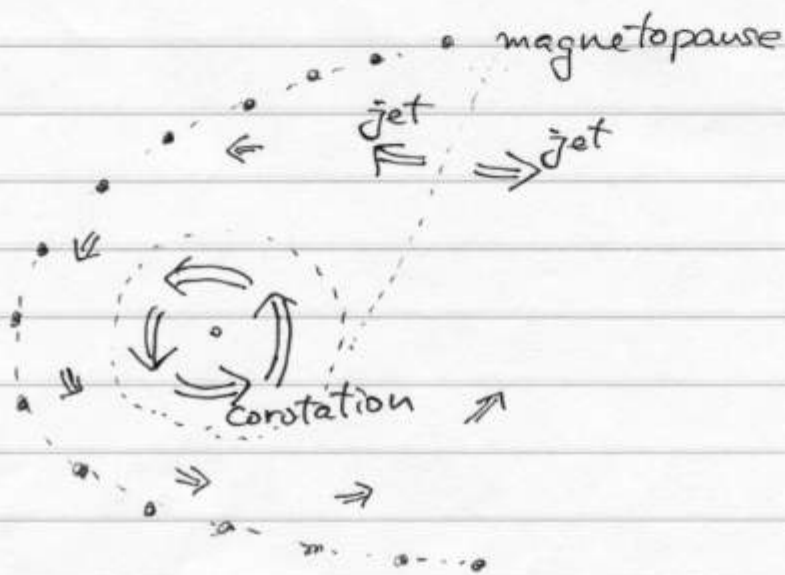 magnetopause
jet
jet
corotation